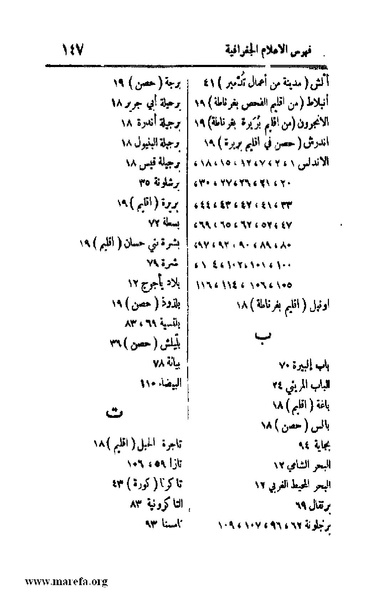 فهرس الاعلام الجغرافية
١٤٧
ألش (مدينة من أعمال تدمير) ٤١
أنبلاط (من اقليم الفحص بغرناطة) ١٩
الانجرون (من اقليم بزيرة بغرناطة) ١٩
اندرش (حصن في اقليم بريرة) ١٩
الاندلس ١ ، ٢ ، ٧ ، ١٢ ، ١٥ ، ١٨ ،
٢٠ ، ٢١ ، ٢٦ ، ٢٧ ، ٣٠ ،
٣٣ ، ٤١ ، ٤٢ ، ٤٣ ، ٤٤ ،
٤٧ ، ٥٢ ، ٦٢ ، ٦٥ ، ٦٩ ،
٨٠ ، ٨٩ ، ٩٠ ، ٩٢ ، ٩٧ ،
١٠٠ ، ١٠١ ، ١٠٢ ، ١٠٤ ،
١٠٥ ، ١٠٦ ، ١١٤ ، ١١٦
اونيل (اقليم بغرناطة) ١٨
ب
باب إلبيرة ٧٠
الباب المريني ٢٤
باغة (اقليم) ١٨
بالس (حصن) ١٨
بجاية ٩٤
البحر الشامي ١٢
البحر المحيط الغربي ١٢
برتقال ٦٩
برجلونة ٦٢ ، ٩٦ ، ١٠٧ ، ١٠٩
برجة (حصن) ١٩
برجيلة أبي جرير ١٨
برجيلة أندرة ١٨
برجيلة البنيول ١٨
برجيلة قيس ١٨
برشلونة ٣٥
بريرة (اقليم) ١٩
بسطة ٧٢
بشرة بني حسان (اقليم) ١٩
شرة ٧٩
بلاد يأجوج ١٢
بلذوذ (حصن) ١٩
بلنسية ٦٩ ، ٨٣
بليلش (حصن) ٣٩
بيانة ٧٨
البيضاء ١١٥
ت
تاجرة الجبل (اقليم) ١٨
تازا ٥٩ ، ١٠٦
تاكرنا (كورة) ٤٣
التاكرونية ٨٣
تامسنا ٩٣
www.marefa.org